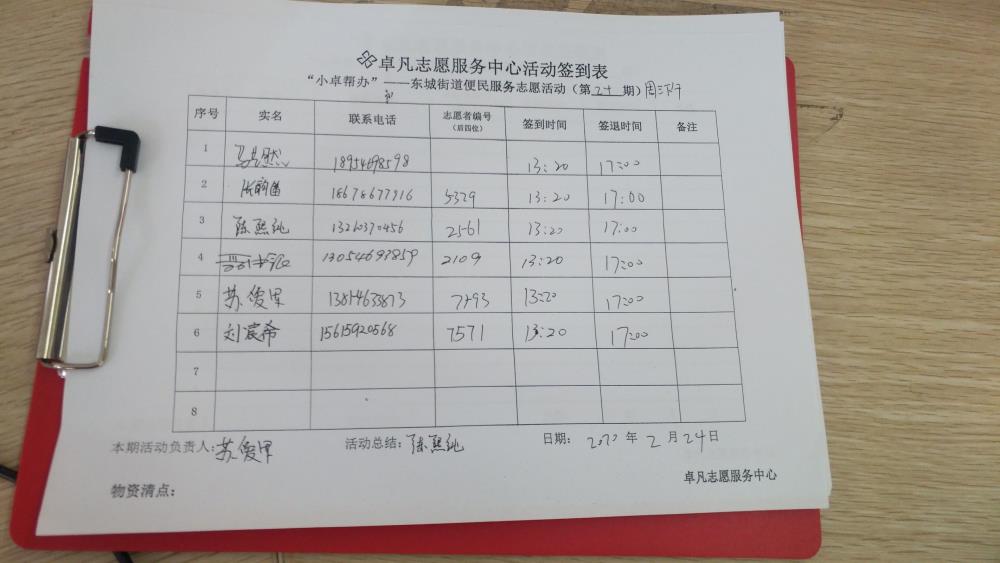 卓凡志愿服务中心活动签到表
“小卓帮办”——东城街道便民服务志愿活动（第二十期）周三下午
序号 实名 联系电话 志愿者编号（后四位） 签到时间 签退时间 备注
1 18954698598 13:20 17:00
2 18678677916 5329 13:20 17:00
3 陈熙纯 13260370456 2561 13:20 17:00
4 13054693859 2109 13:20 17:00
5 苏俊军 13:20 17:00
6 刘宸希 15615920568 7571 13:20 17:00
7
8
本期活动负责人：苏俊军 活动总结：陈熙纯 日期： 年 2 月 24 日
卓凡志愿服务中心
物资清点：